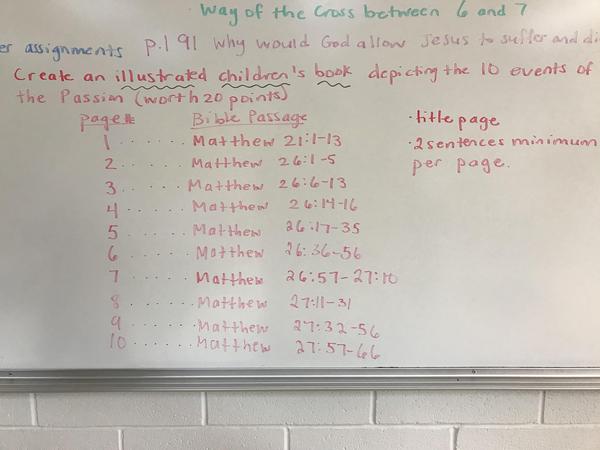 Way of the Cross between 6 and 7
er assignments p.191 Why would God allow Jesus to suffer and di
Create an illustrated children's book depicting the 10 events of
the Passion (worth 20 points)
page# Bible Passage
1 ...... Matthew 21:1-13
2 ...... Matthew 26:1-5
3 ...... Matthew 26:6-13
4 ...... Matthew 26:14-16
5 ...... Matthew 26:17-35
6 ...... Matthew 26:36-56
7 ...... Matthew 26:57-27:10
8 ...... Matthew 27:11-31
9 ...... Matthew 27:32-56
10 ...... Matthew 27:57-66
· title page
· 2 sentences minimum
per page.